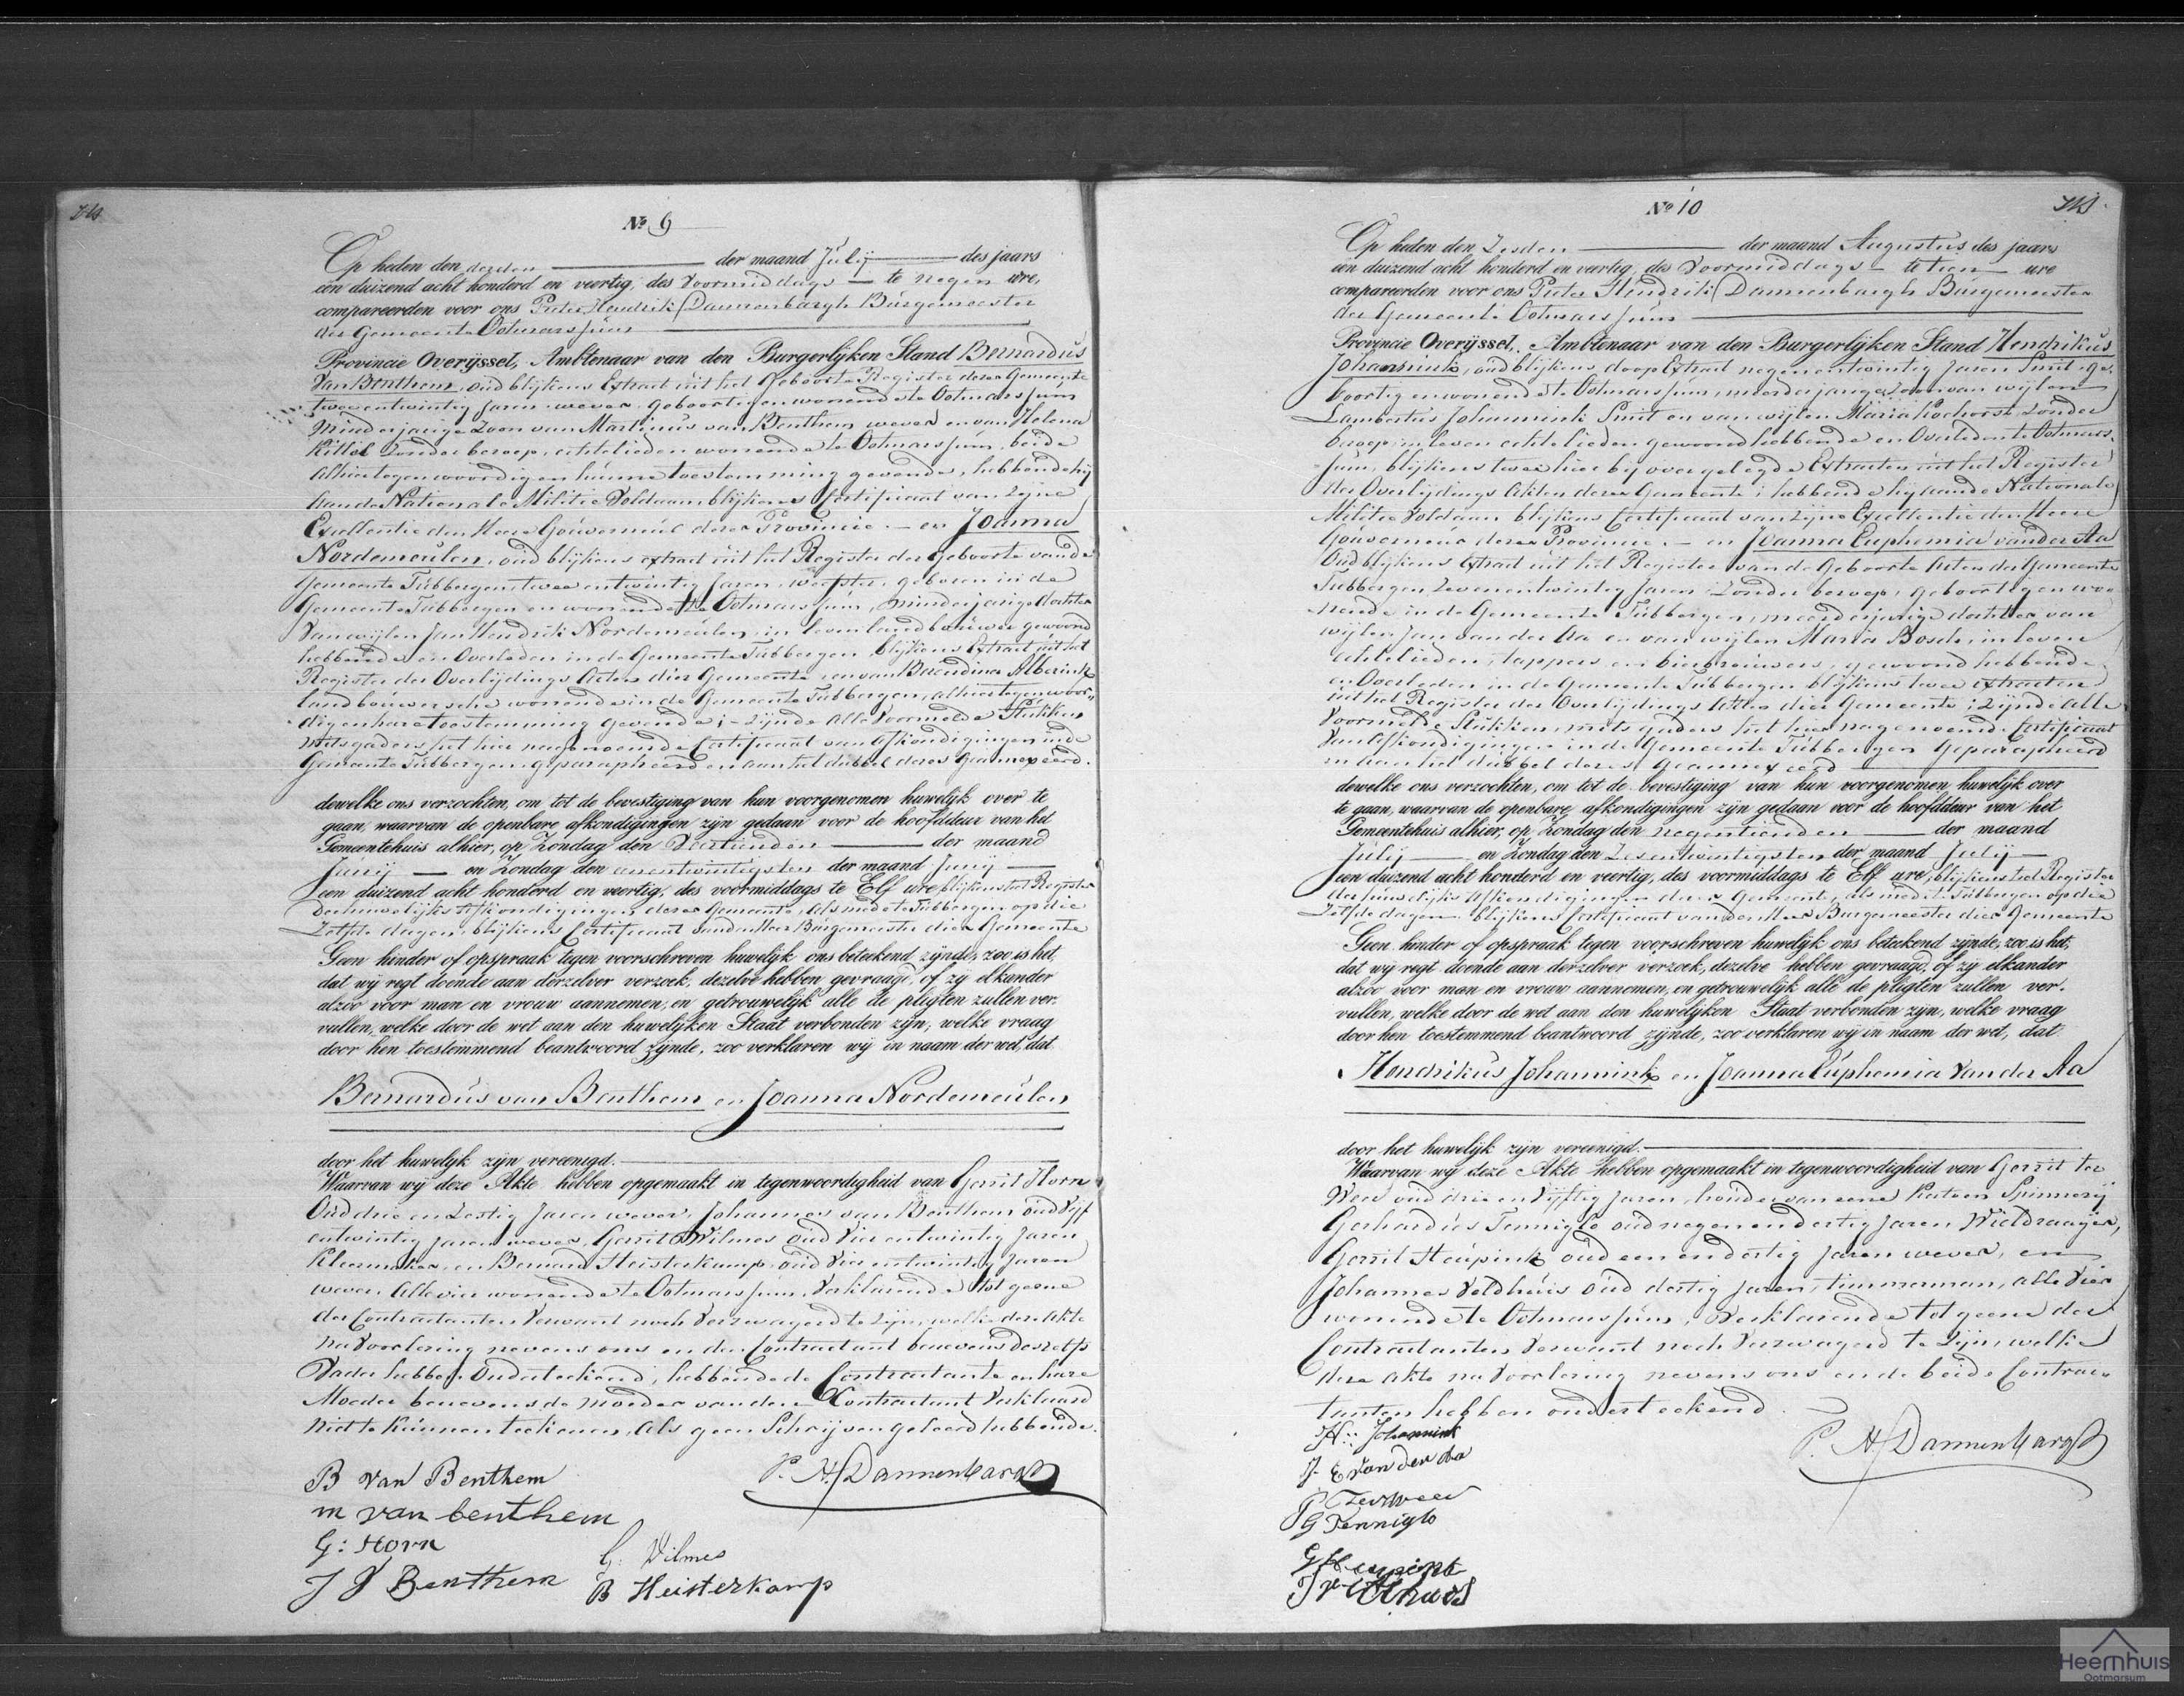 Nº 9
Op heden den derden der maand Julij des jaars
een duizend acht honderd en veertig, des Voormiddags te negen ure,
compareerden voor ons Pieter Hendrik Dannenbargh Burgemeester
der Gemeente Ootmarssum
Provincie Overijssel, Ambtenaar van den Burgerlijken Stand Bernardus
Van Benthem, oud blijkens Extract uit het Geboorte Register dezer Gemeente
twee entwintig Jaren wever geboortig en wonende te Ootmarssum
Minderjarige Zoon van Martinus van Benthem wever en van Helena
Kittel Zonder beroep, echtelieden wonende te Ootmarssum, beide
alhier tegenwoordig en hunne toestemming gevende, hebbende hij
aan de Nationale Militie Voldaan blijkens Certificaat van Zijne
Excellentie den Heer Gouverneur dezer Provincie. — en Joanna
Nordemeulen, oud blijkens extract uit het Register der Geboorte van de
Gemeente Tubbergen twee entwintig Jaren, weefster, geboren in de
Gemeente Tubbergen en wonende te Ootmarssum, minderjarige dochter
Van wijlen Jan Hendrik Nordemeulen, in leven landbouwer gewoond
hebbende en Overleden in de Gemeente Tubbergen, blijkens Extract uit het
Register der Overlijdings Acten dier Gemeente en van Berendina Alberink
landbouwersche wonende in de Gemeente Tubbergen, alhier tegenwoor-
dig en hare toestemming gevende; — Zijnde alle Voormelde Stukken
mitsgaders het hier nagenoemde Certificaat van Afkondigingen in de
Gemeente Tubbergen geparapheerd en aan het dubbel dezes Geannexeerd.
dewelke ons verzochten, om tot de bevestiging van hun voorgenomen huwelijk over te
gaan, waarvan de openbare afkondigingen zijn gedaan voor de hoofddeur van het
Gemeentehuis alhier, op Zondag den Veertienden der maand
Junij en Zondag den eenentwintigsten der maand Junij
een duizend acht honderd en veertig, des voormiddags te Elf ure blijkens het Register
der huwelijks Afkondigingen dezer Gemeente, als mede te Tubbergen op die
Zelfde dagen, blijkens Certificaat van den Heer Burgemeester dier Gemeente
Geen hinder of opspraak tegen voorschreven huwelijk ons beteekend zijnde, zoo is het,
dat wij regt doende aan derzelver verzoek, dezelve hebben gevraagd, of zij elkander
alzoo voor man en vrouw aannemen, en getrouwelijk alle de pligten zullen ver-
vullen, welke door de wet aan den huwelijken Staat verbonden zijn, welke vraag
door hen toestemmend beantwoord zijnde, zoo verklaren wij in naam der wet, dat
Bernardus van Benthem en Joanna Nordemeulen
door het huwelijk zijn vereenigd.
Waarvan wij deze Akte hebben opgemaakt in tegenwoordigheid van Gerrit Horn
Oud drie en Zestig Jaren wever, Johannes van Benthem oud Vijf
entwintig Jaren wever, Gerrit Wilmes oud Vier entwintig Jaren
Kleermaker, en Bernard Heisterkamp, oud Vier entwintig Jaren
wever, Alle vier wonende te Ootmarssum, Verklarende tot geene
der Contractanten Verwant noch Verzwagerd te zijn, welke deze Akte
na Voorlezing nevens ons en den Contractant benevens deszelfs
Vader hebben Onderteekend, hebbende de Contractante en hare
Moeder benevens de Moeder van den Contractant Verklaard
Niet te Kunnen teekenen, als geen Schrijven geleerd hebbende.
B Van Benthem
P. H. Dannenbargh
m van benthem
G: Horn
G. Wilmes
J V Benthem
B Heisterkamp
Nº 10
Op heden den Zesden der maand Augustus des jaars
een duizend acht honderd en veertig, des Voormiddags te tien ure
compareerden voor ons Pieter Hendrik Dannenbargh Burgemeester
der Gemeente Ootmarssum
Provincie Overijssel, Ambtenaar van den Burgerlijken Stand Hendrikus
Johannink, oud blijkens doop Extract negenentwintig Jaren Smit, ge-
boortig en wonende te Ootmarssum, meerderjarige Zoon van wijlen
Lambertus Johannink Smit en van wijlen Maria Kochorst, Zonder
beroep, in leven echtelieden gewoond hebbende en Overleden te Ootmars-
sum, blijkens twee hier bij overgelegde Extracten uit het Register
der Overlijdings Akten dezer Gemeente; hebbende hij aan de Nationale
Militie Voldaan blijkens Certificaat van Zijne Excellentie den Heere
Gouverneur dezer Provincie. — en Joanna Euphemia van der Aa
Oud blijkens Extract uit het Register van de Geboorte Acten der Gemeente
Tubbergen Zevenentwintig Jaren, Zonder beroep, Geboortig en wo-
nende in de Gemeente Tubbergen, meerderjarige dochter van
wijlen Jan van der Aa en van wijlen Maria Bosch, in leven
echtelieden, tappers en bierbrouwers, gewoond hebbende
en Overleden in de Gemeente Tubbergen blijkens twee extracten
uit het Register der Overlijdings Acten dier Gemeente; Zijnde alle
Voormelde Stukken, mitsgaders het hier nagenoemd Certificaat
Van Afkondigingen in de Gemeente Tubbergen Geparapheerd
en aan het dubbel dezes Geannexeerd
dewelke ons verzochten, om tot de bevestiging van hun voorgenomen huwelijk over
te gaan, waarvan de openbare afkondigingen zijn gedaan voor de hoofddeur van het
Gemeentehuis alhier, op Zondag den negentienden der maand
Julij en Zondag den Zesentwintigsten der maand Julij
een duizend acht honderd en veertig, des voormiddags te Elf ure, blijkens het Register
der huwelijks Afkondigingen dezer Gemeente, als mede te Tubbergen op die
Zelfde dagen blijkens Certificaat van den Heer Burgemeester dier Gemeente
Geen hinder of opspraak tegen voorschreven huwelijk ons beteekend zijnde, zoo is het,
dat wij regt doende aan derzelver verzoek, dezelve hebben gevraagd, of zij elkander
alzoo voor man en vrouw aannemen, en getrouwelijk alle de pligten zullen ver-
vullen, welke door de wet aan den huwelijken Staat verbonden zijn, welke vraag
door hen toestemmend beantwoord zijnde, zoo verklaren wij in naam der wet, dat
Hendrikus Johannink en Joanna Euphemia Van der Aa
door het huwelijk zijn vereenigd.
Waarvan wij deze Akte hebben opgemaakt in tegenwoordigheid van Gerrit ter
Weer oud drie en Vijftig Jaren, houder van eene Katoen Spinnerij
Gerhardus Tenniglo oud negenendertig Jaren Wieldraaijer,
Gerrit Heupink oud eenendertig Jaren wever, en
Johannes Veldhuis oud dertig Jaren, timmerman, alle Vier
wonende te Ootmarssum, Verklarende tot geene der
Contractanten Verwant noch Verzwagerd te Zijn, welke
deze Akte na Voorlezing nevens ons en de beide Contrac-
tanten hebben onderteekend
H: Johannink
P. H. Dannenbargh
J. E Van der Aa
G Terweer
G Tenniglo
G Heupink
J Veldhuis
Heemhuis
Ootmarsum